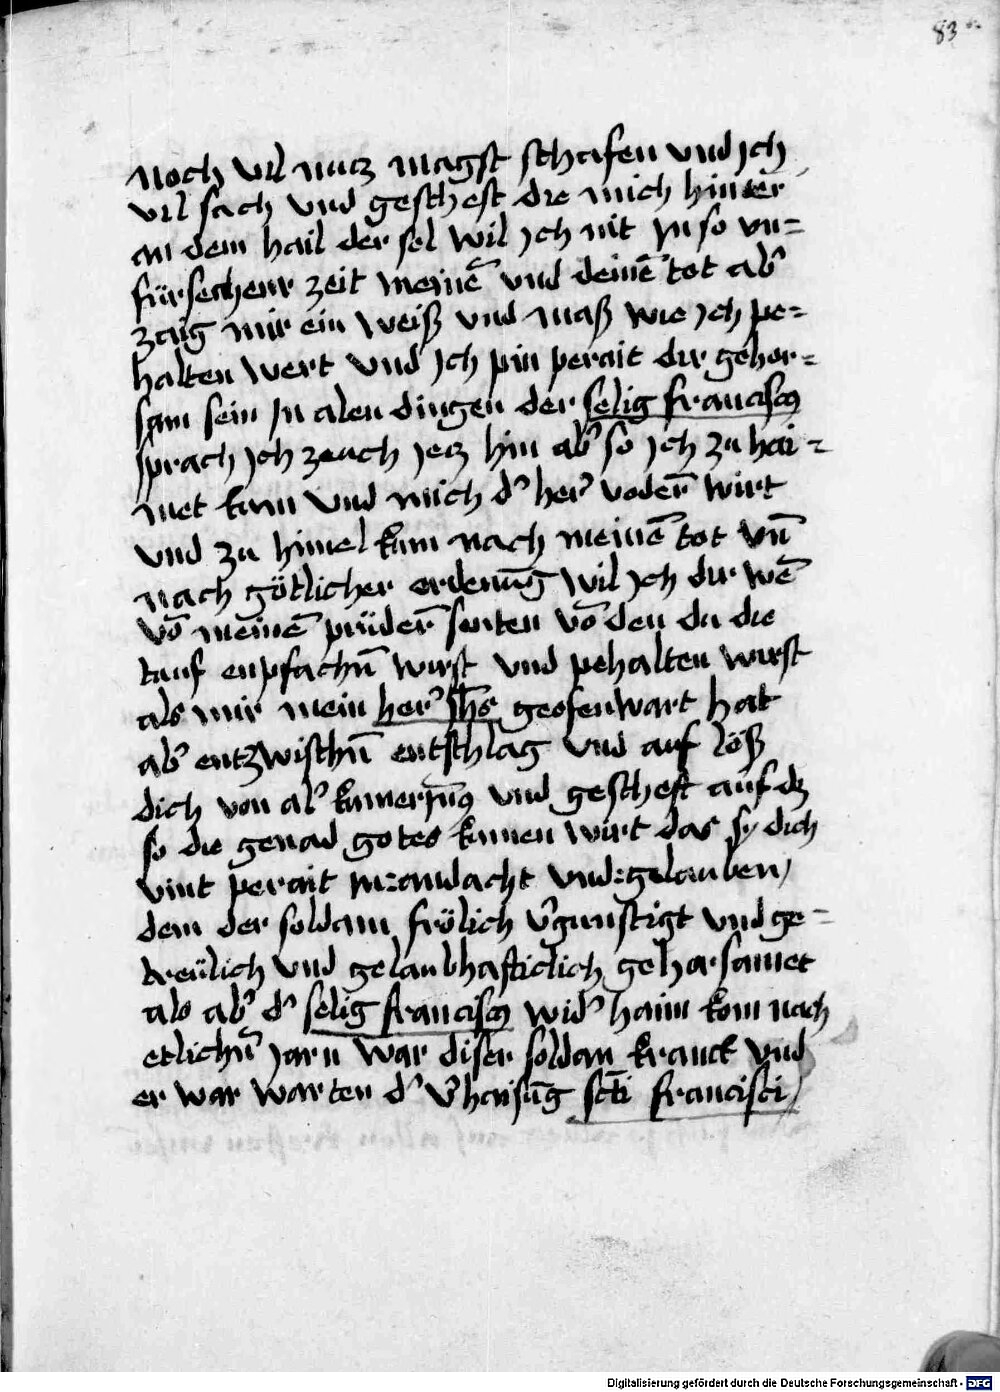 83
noch vil nucz magst schafen vnd jch
vil sach vnd geschefft die mich hinter
an dem hail der sel wil jch nit jn so vn=
fürsechenr zeit meinē vnd deinē tot abʼ
zaig mir ein weiß vnd maß wie jch pe=
halten wert vnd jch pin perait dir gehor=
sam sein jn alen dingen der selig franciscꝰ
sprach jch zeuch jecz hin abʼ so jch zu hai=
met kum vnd mich dʼ herʼ voderñ wirt
vnd zu himel kum nach meinē tot vñ
nach götlicher ordenūg wil jch dir wē
vō meinē prüderñ senten vō den du die
tauf enpfachñ wirst vnd pehalten wirst
als mir mein herʼ jh̄s geofenwart hat
abʼ entzwischñ entschlag vnd auf löß
dich von alʼ kumerjnꝰ vnd gescheft auf dz
so die genad gotes kumen wirt das sy dich
vint perait jn andacht vnd gelauben
dem der soldam frölich vʼgunstigt vnd ge=
treülich vnd gelaubhafticlich gehorsamet
als abʼ dʼ selig franciscꝰ widʼ haim kom nach
etlichñ jarn war diser soldan kranck vnd
er war warten dʼ vʼhaisūg sc̄ti francisci
Digitalisierung gefördert durch die Deutsche Forschungsgemeinschaft - DFG